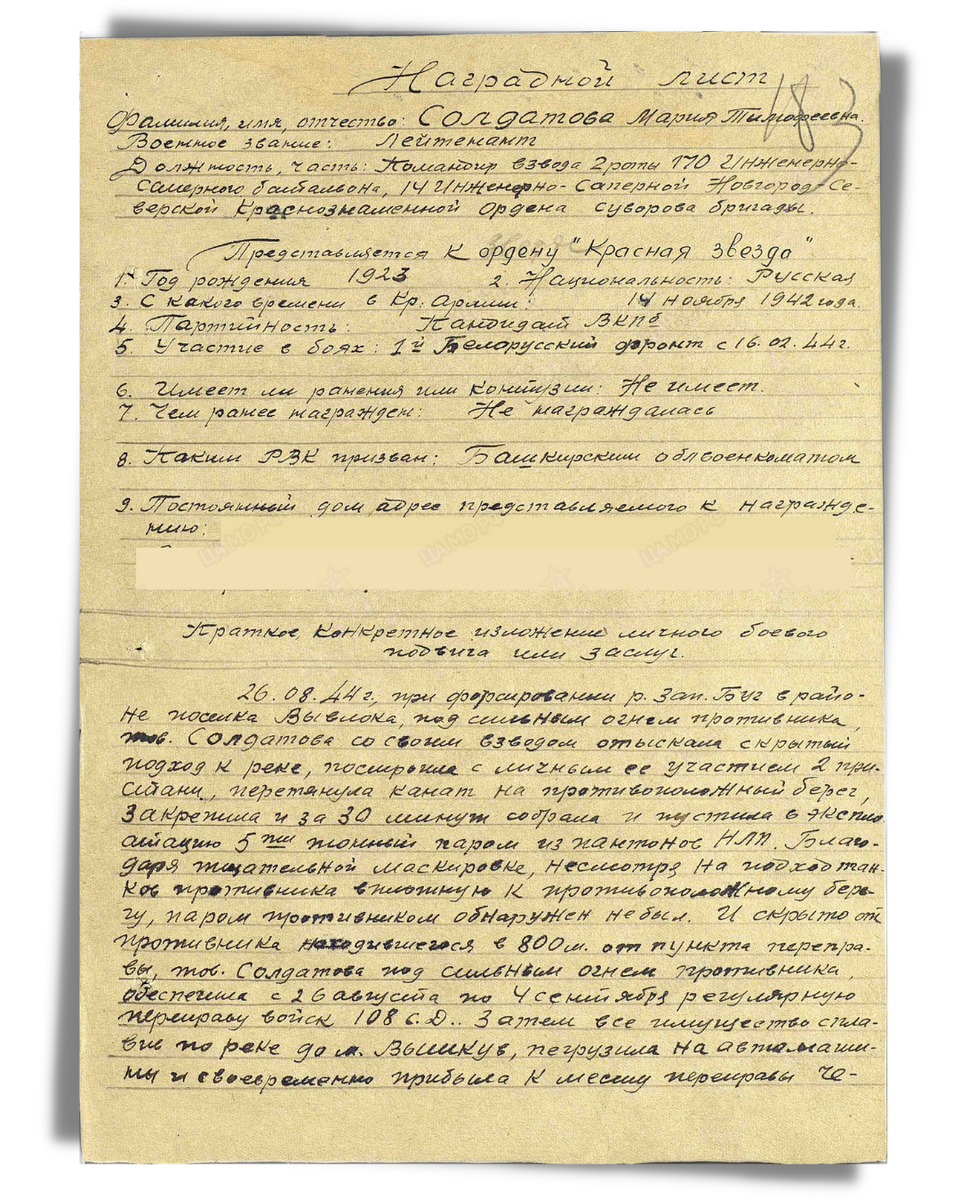 Наградной лист
183
Фамилия, имя, отчество: Солдатова Мария Тимофеевна.
Военное звание: Лейтенант
Должность, часть: Командир взвода 2 роты 170 Инженерно-
саперного батальона, 14 Инженерно-Саперной Новгород-Се-
верской Краснознаменной Ордена Суворова бригады.
Представляется к ордену "Красная звезда"
1. Год рождения 1923 2. Национальность: Русская
3. С какого времени в Кр. Армии: 14 ноября 1942 года.
4. Партийность: Кандидат ВКПб
5. Участие в боях: 1й Белорусский фронт с 16.02.44г.
6. Имеет ли ранения или контузии: Не имеет.
7. Чем ранее награжден: Не награждалась
8. Каким РВК призван: Башкирским облвоенкоматом
9. Постоянный дом. адрес представляемого к награжде-
нию:
Краткое, конкретное изложение личного боевого
подвига или заслуг.
26.08.44г, при форсировании р. Зап. Буг в райо-
не поселка Вывлока, под сильным огнем противника,
тов. Солдатова со своим взводом отыскала скрытый
подход к реке, построила с личным ее участием 2 при-
стани, перетянула канат на противоположный берег,
закрепила и за 30 минут собрала и пустила в экспло
атацию 5ти тонный паром из пантонов НЛП. Благо-
даря тщательной маскировке, несмотря на подход тан-
ков противника вплотную к противоположному бере-
гу, паром противником обнаружен не был. И скрыто от
противника находившегося в 800 м. от пункта перепра-
вы, тов. Солдатова под сильным огнем противника
обеспечила с 26 августа по 4 сентября регулярную
переправу войск 108 с.д.. Затем все имущество спла-
вив по реке до м. Вышкув, погрузила на автомаши-
ны и своевременно прибыла к месту переправы че-